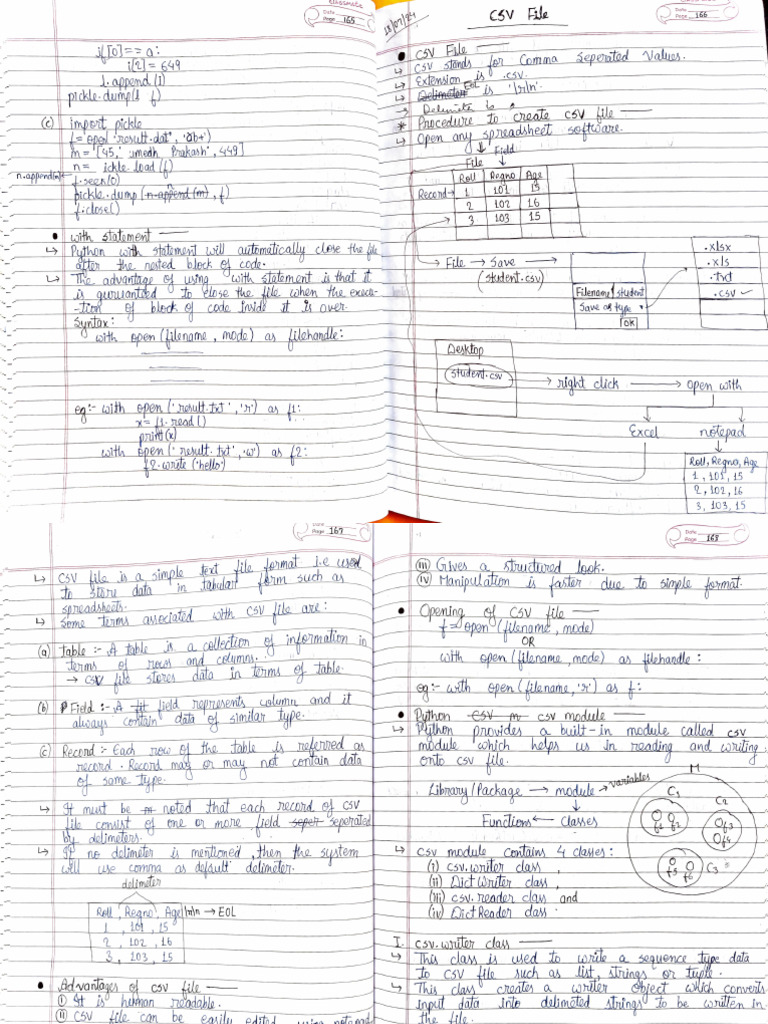 Page 165
if[0]== a:
i[2] = 649
l.append(i)
pickle.dump(l f)
(c) import pickle
f = open 'result.dat', 'ab+')
m = [45, 'medh Prakash', 449]
n = ickle.load(f)
n.append(m)
f.seek(0)
pickle.dump(n.append(m), f)
f.close()
• with statement
↳ Python with statement will automatically close the file
after the nested block of code.
↳ The advantage of using with statement is that it
is guruanteed to close the file when the execu-
-tion of block of code inside it is over.
Syntax:
with open(filename, mode) as filehandle:
eg:- with open('result.txt', 'r') as f1:
x = f1.read()
print(x)
with open('result.txt', 'w') as f2:
f2.write('hello')
Date
Page 166
CSV File
• CSV File
↳ CSV stands for Comma Seperated Values.
↳ Extension is .csv.
↳ Delimeter EOL is '\r\n'.
→ Delimite is
* Procedure to create CSV file
↳ Open any spreadsheet software.
File Field
Roll Regno Age
Record→ 1 101 15
2 102 16
3 103 15
↳ File → Save
(student.csv)
Filename student
Save as type
OK
.xlsx
.xls
.txt
.csv ✓
Desktop
student.csv → right click → open with
Excel notepad
Roll, Regno, Age
1, 101, 15
2, 102, 16
3, 103, 15
Date
Page 167
↳ CSV file is a simple text file format i.e used
to store data in tabular form such as
spreadsheets.
↳ Some terms associated with CSV file are:
(a) Table :- A table is a collection of information in
terms of rows and columns.
→ CSV file stores data in terms of table.
(b) Field :- A fit field represents column and it
always contain data of similar type.
(c) Record :- Each row of the table is referred as
record. Record may or may not contain data
of some type.
↳ It must be noted that each record of CSV
file consist of one or more field seper seperated
by delimeters.
↳ If no delimeter is mentioned, then the system
will use comma as default delimeter.
delimeter
Roll, Regno, Age \r\n → EOL
1, 101, 15
2, 102, 16
3, 103, 15
• Advantages of csv file
(i) It is human readable.
(ii) CSV file can be easily edited using notepad
Date
Page 168
(iii) Gives a structured look.
(iv) Manipulation is faster due to simple format.
• Opening of CSV file
f = open(filename, mode)
OR
with open(filename, mode) as filehandle:
eg:- with open(filename, 'r') as f:
• Python CSV m csv module
↳ Python provides a built-in module called csv
module which helps us in reading and writing
onto csv file.
M
Library/Package → module → variables
Functions ← Classes
C1
f1 f2
C2
f3
f4
C3
f5 f6
↳ csv module contains 4 classes:
(i) csv.writer class,
(ii) DictWriter class,
(iii) csv.reader class and
(iv) DictReader class.
I. csv.writer class
↳ This class is used to write a sequence type data
to CSV file such as list, strings or tuple.
↳ This class creates a writer object which converts
input data into delimeted strings to be written in
the file.